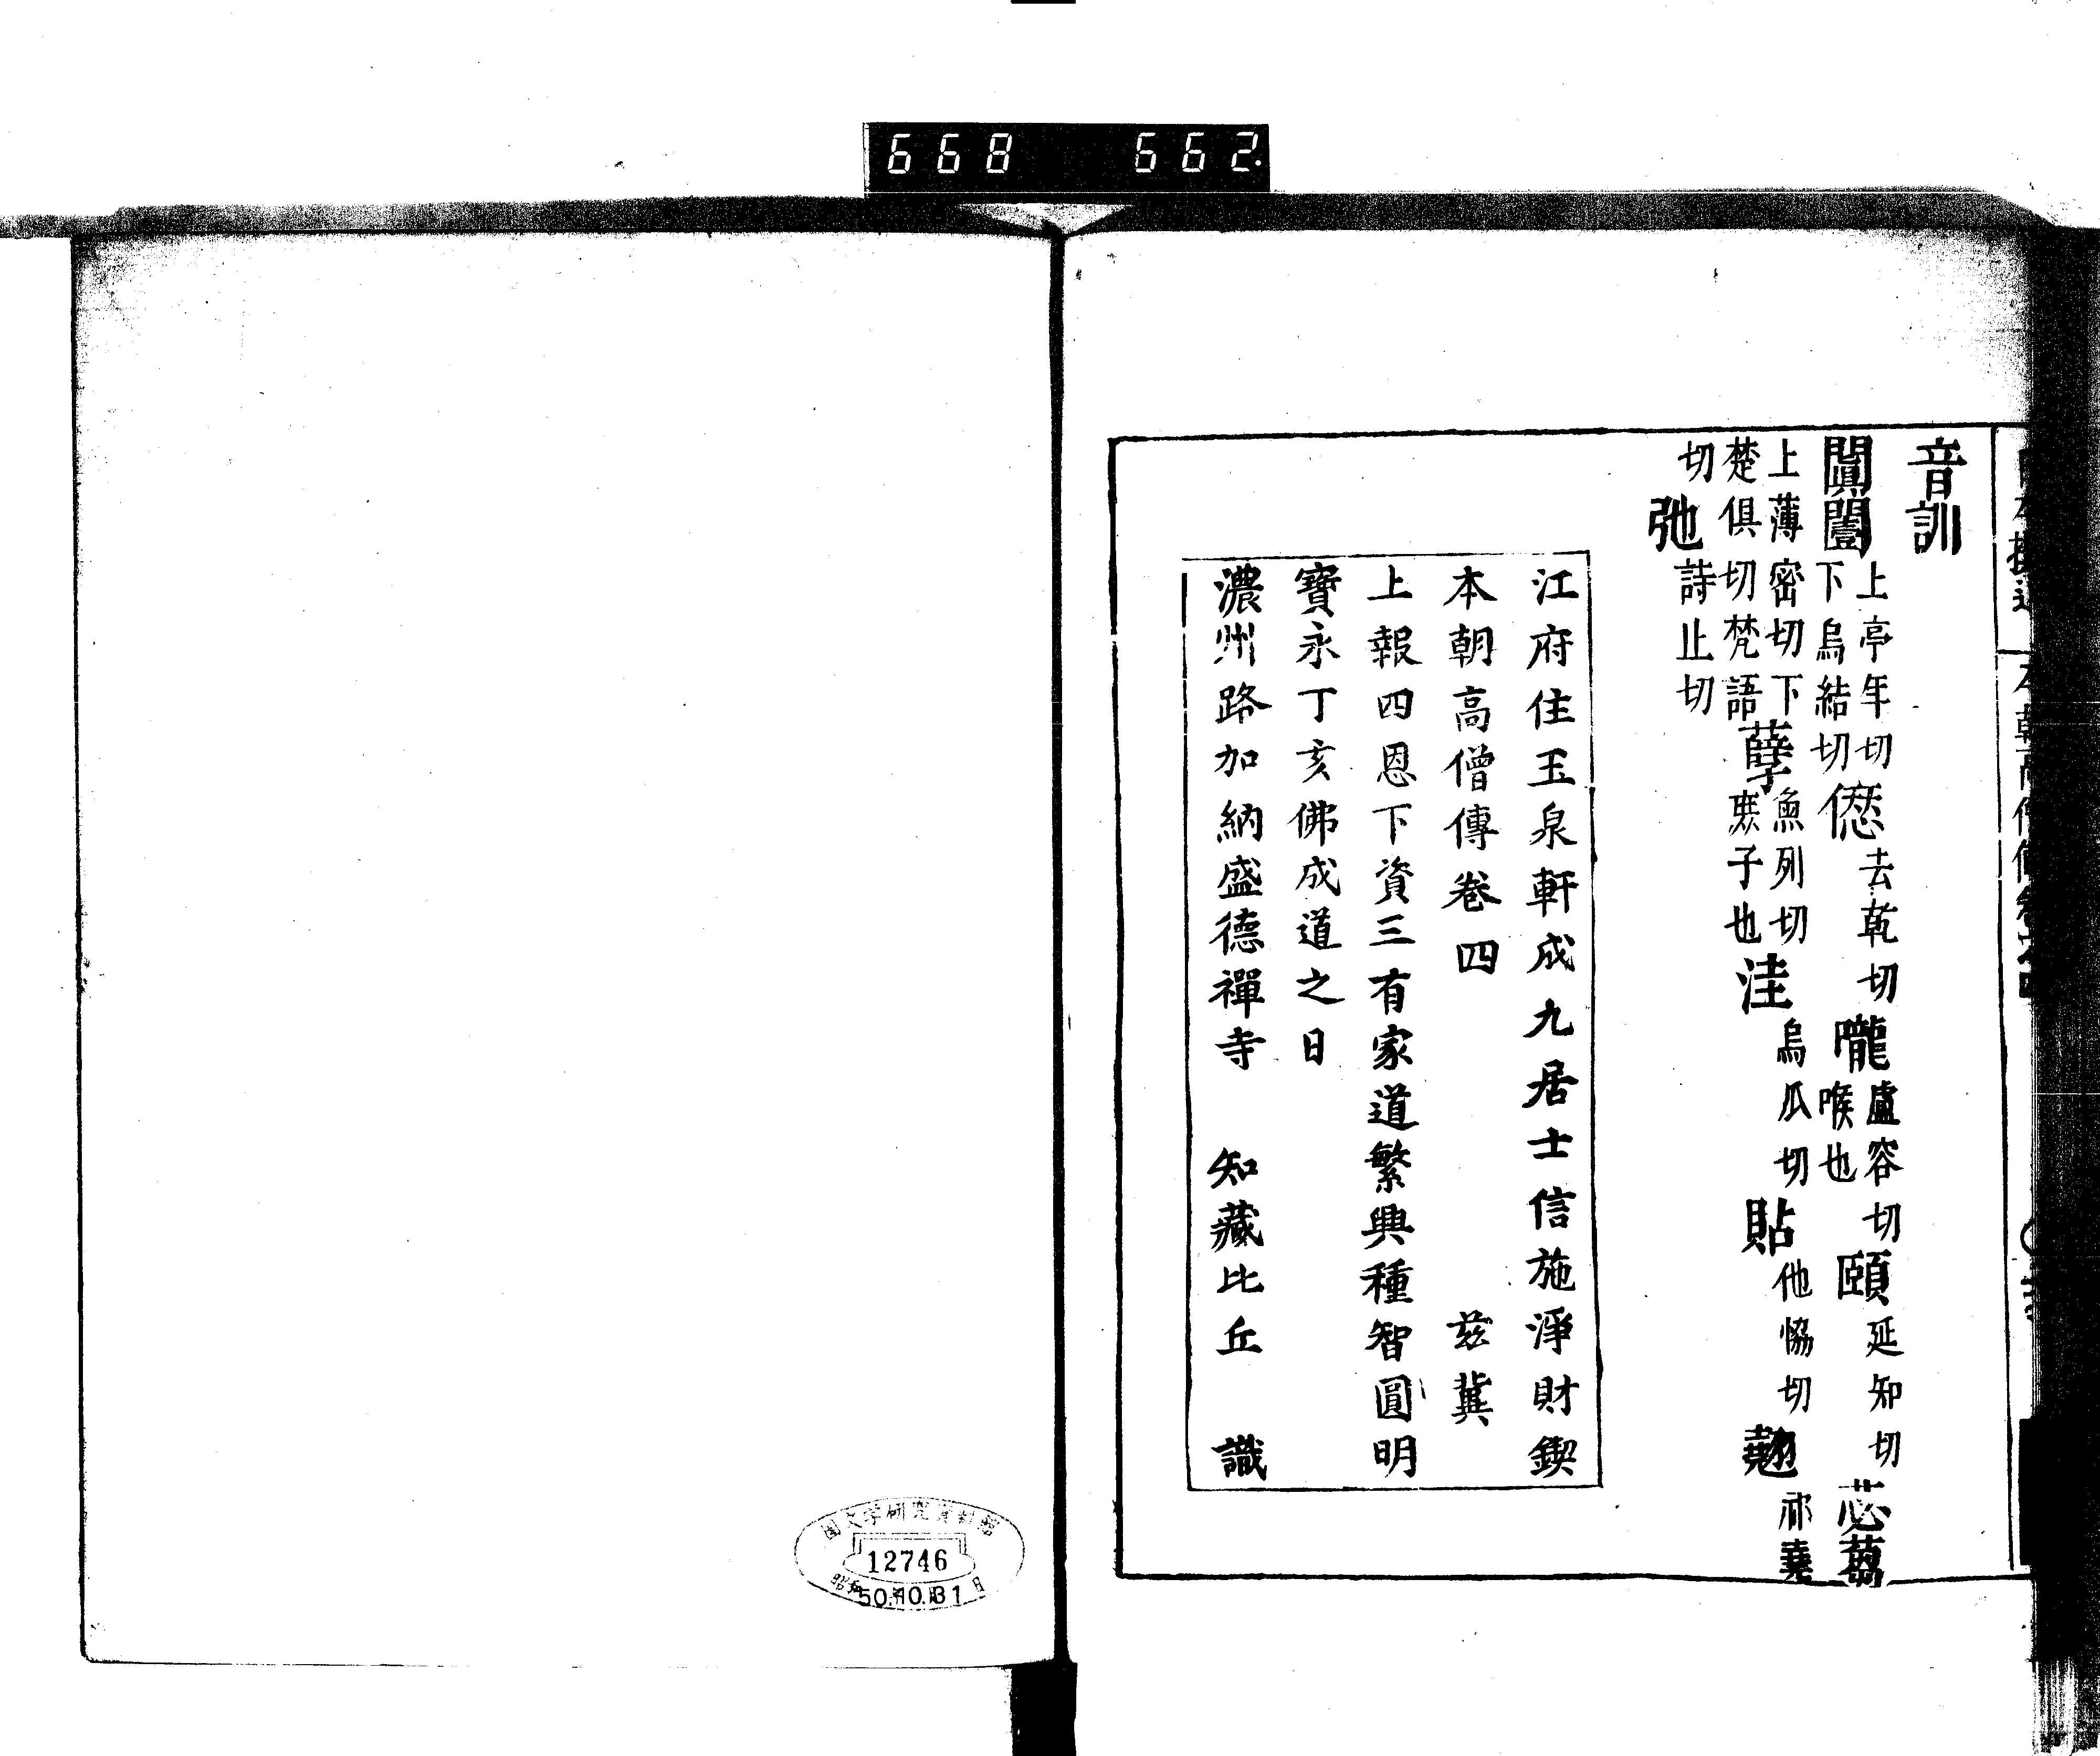 668 662
音訓
闐闛上亭年切下烏結切㒄去乾切嚨盧容切喉也頤延知切苾蒭
上薄密切下楚俱切梵語孽魚列切庶子也洼烏瓜切貼他恊切翹祁堯
切弛詩止切
江府住玉泉軒成九居士信施淨財鍥
本朝高僧傳卷四 茲冀
上報四恩下資三有家道繁興種智圓明
寶永丁亥佛成道之日
濃州路加納盛德禪寺 知藏比丘 識
国文学研究資料館
12746
昭和50.10.31日